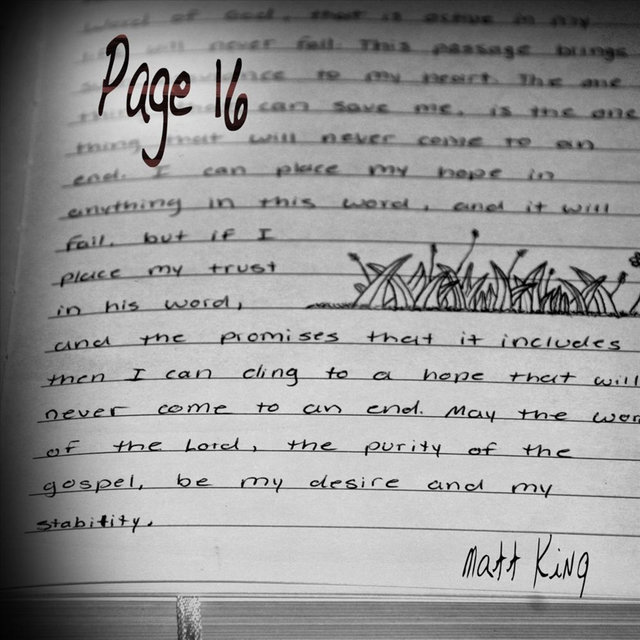 word of God, that is alone in my
will never fail. This passage brings
Page 16
to my heart. The one
thing can save me, is the one
thing that will never come to an
end. I can place my hope in
anything in this word, and it will
fail. but if I
place my trust
in his word,
and the promises that it includes
then I can cling to a hope that will
never come to an end. May the wor
of the Lord, the purity of the
gospel, be my desire and my
stability.
Matt King